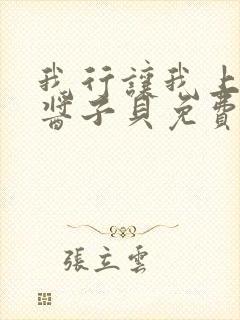 我行讓我上
醬子貝免費
張立雲